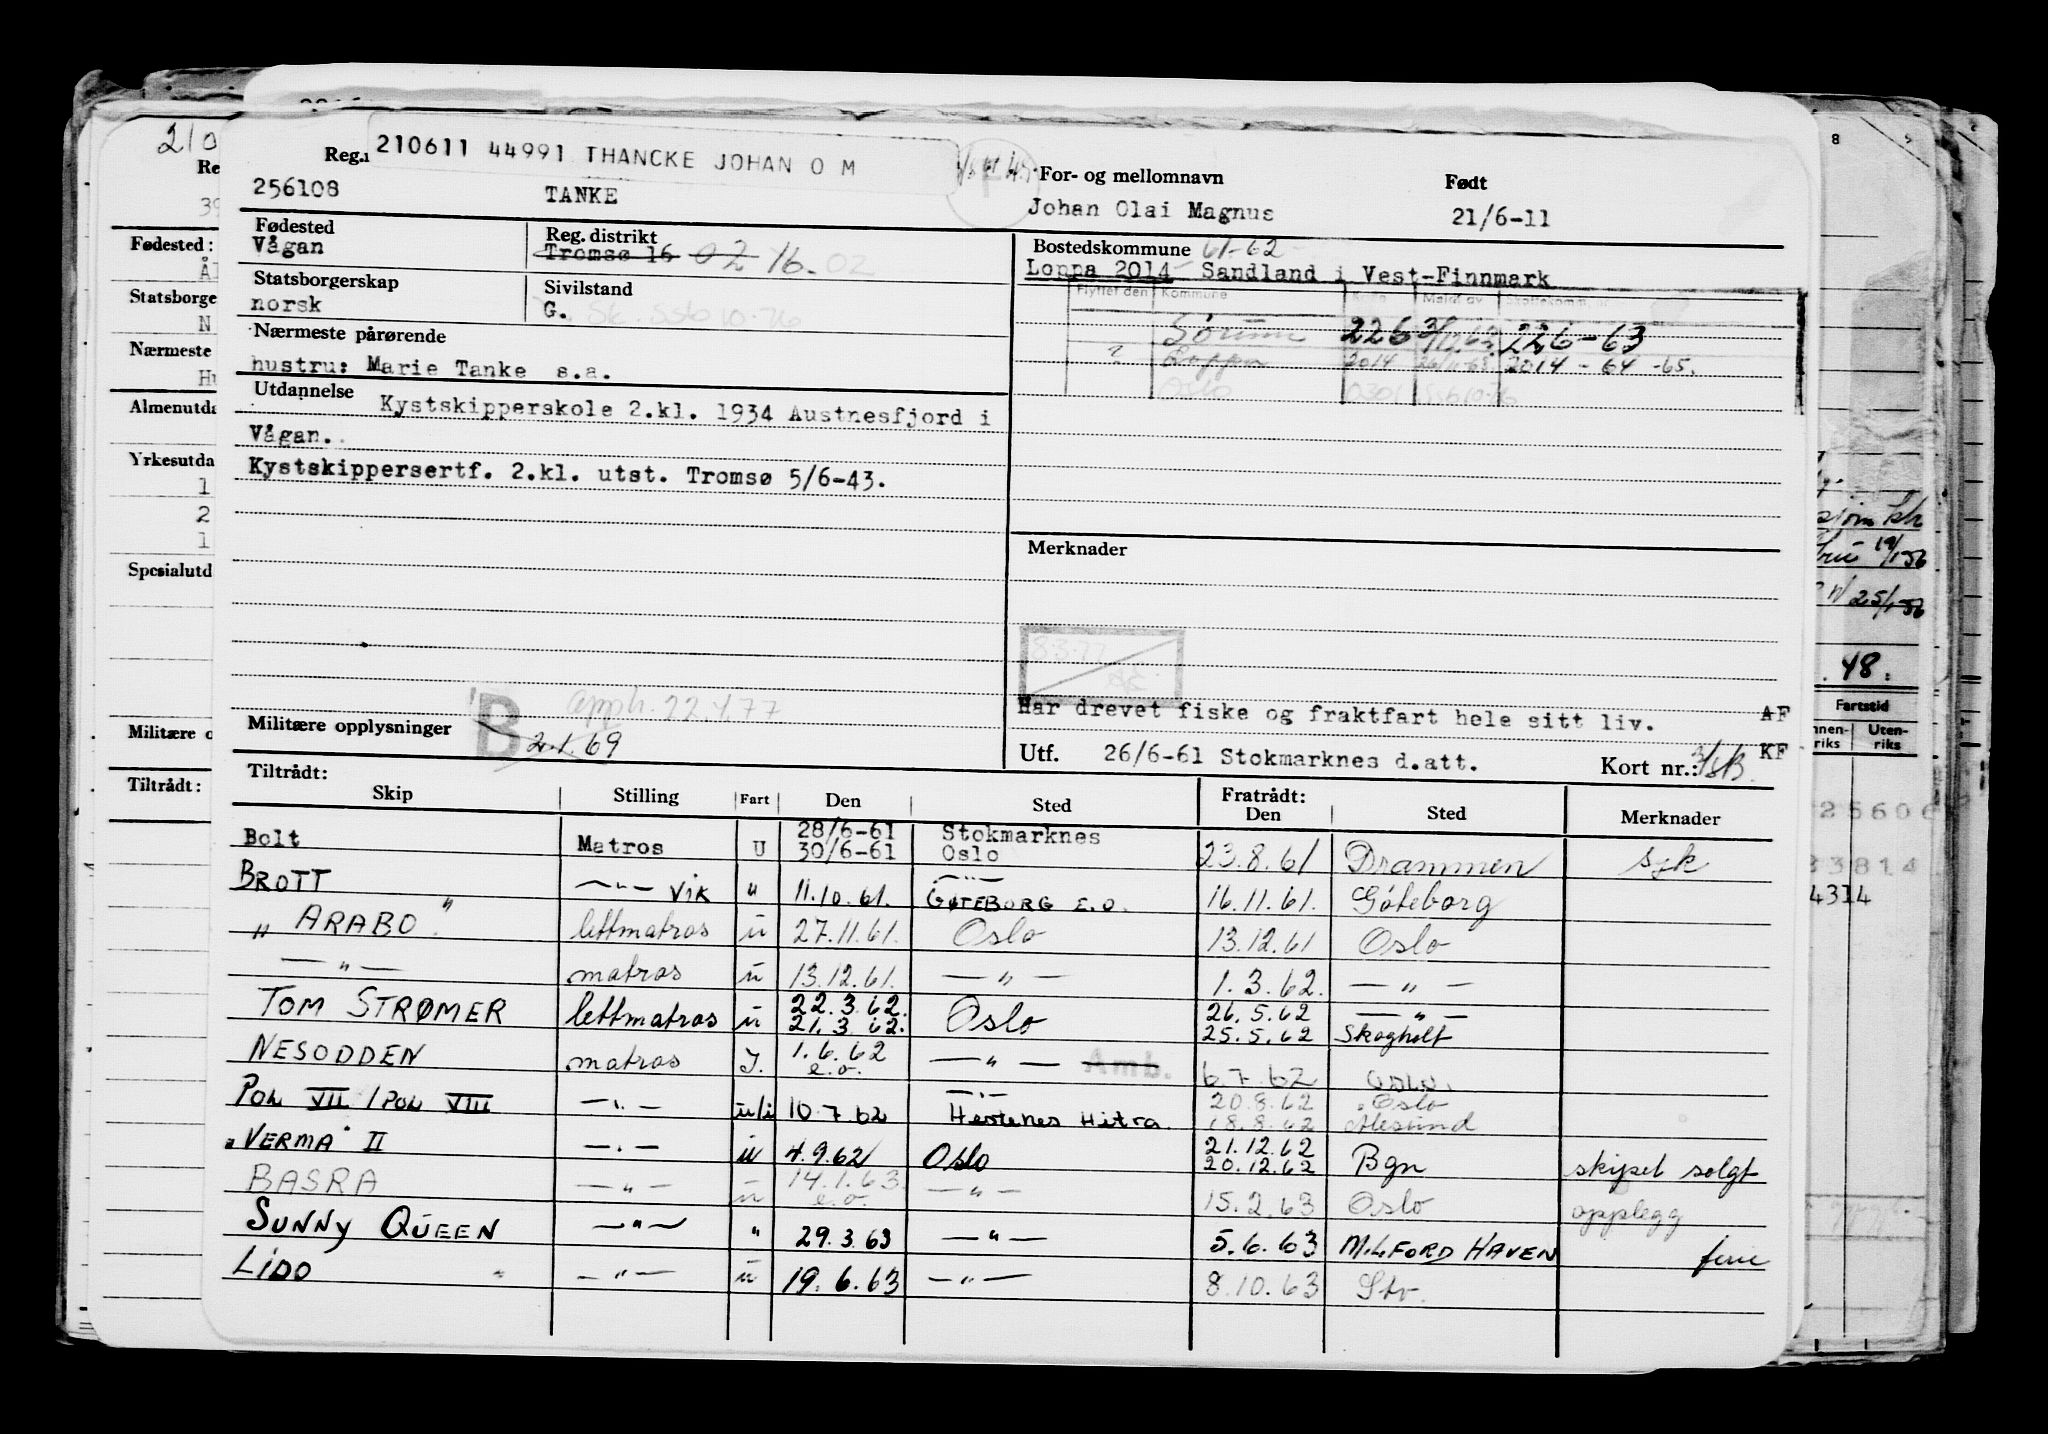 210611 44991 THANCKE JOHAN O M
256108 TANKE
For- og mellomnavn
Johan Olai Magnus
Født
21/6-11
Fødested
Vågan
Reg. distrikt
Tromsø 16 02 16. 02
Bostedskommune 61-62
Loppa 2014 Sandland i Vest-Finnmark
Statsborgerskap
norsk
Sivilstand
G.
Flyttet den Kommune
Sørum 226 226-63
2014 2014 - 64 -65.
Oslo 0301
Nærmeste pårørende
hustru: Marie Tanke s.a.
Utdannelse Kystskipperskole 2.kl. 1934 Austnesfjord i
Vågan.
Kystskippersertf. 2.kl. utst. Tromsø 5/6-43.
Merknader
8.3.77
Har drevet fiske og fraktfart hele sitt liv. AF
Utf. 26/6-61 Stokmarknes d.att. Kort nr.: KF
Militære opplysninger B 2.1.69
22.4.77
Tiltrådt: Fratrådt:
Skip Stilling Fart Den Sted Den Sted Merknader
Bolt Matros U 28/6-61 Stokmarknes
30/6-61 Oslo 23.8.61 Drammen syk
BROTT —"— VIK " 11.10.61. —"— GØTEBORG E.O. 16.11.61. Göteborg
" ARABO " lettmatros u 27.11.61. Oslo 13.12.61 Oslo
—"— matros u 13.12.61. —"— 1.3.62. —"—
TOM STRØMER lettmatros u 22.3.62. Oslo 26.5.62 —"—
21.3.62. 25.5.62 Skogholt
NESODDEN matros I. 1.6.62 e.o. —"— Amb. 6.7.62 OSLO.
POL VII / POL VIII —"— u/i 10.7.62 —"— Hitra. 20.8.62 Oslo
18.8.62 Ålesund
"VERMA" II —"— u 4.9.62 Oslo 21.12.62
20.12.62 Bgn skipet solgt
BASRA —"— u 14.1.63. e.o. —"— 15.2.63 Oslo opplegg
SUNNY QUEEN —"— " 29.3.63 —"— 5.6.63 MILFORD HAVEN ferie
LIDO —"— u 19.6.63 —"— 8.10.63 Stv.
Fødested:
Statsborge
Nærmeste
Almenutda
Yrkesutda
1
2
1
Militære o
Tiltrådt:
48.
Fartstid
Uten-
riks
4314